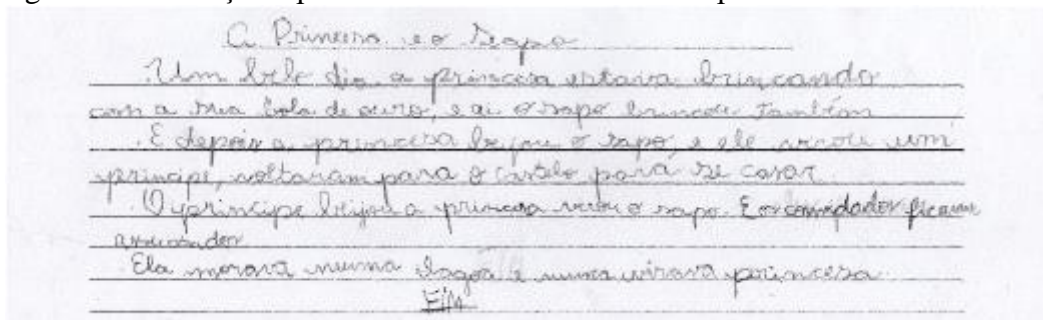 A Princesa e o Sapo
Um belo dia a princesa estava brincando
com a sua bola de ouro, e ai o sapo brincou também
E depois a princesa beijou o sapo, e ele virou um
príncipe, voltaram para o castelo para se casar.
O príncipe beijou a princesa virou o sapo. E os convidados ficaram
assustados
Ela morava numa lagoa e nunca virava princesa
FIM